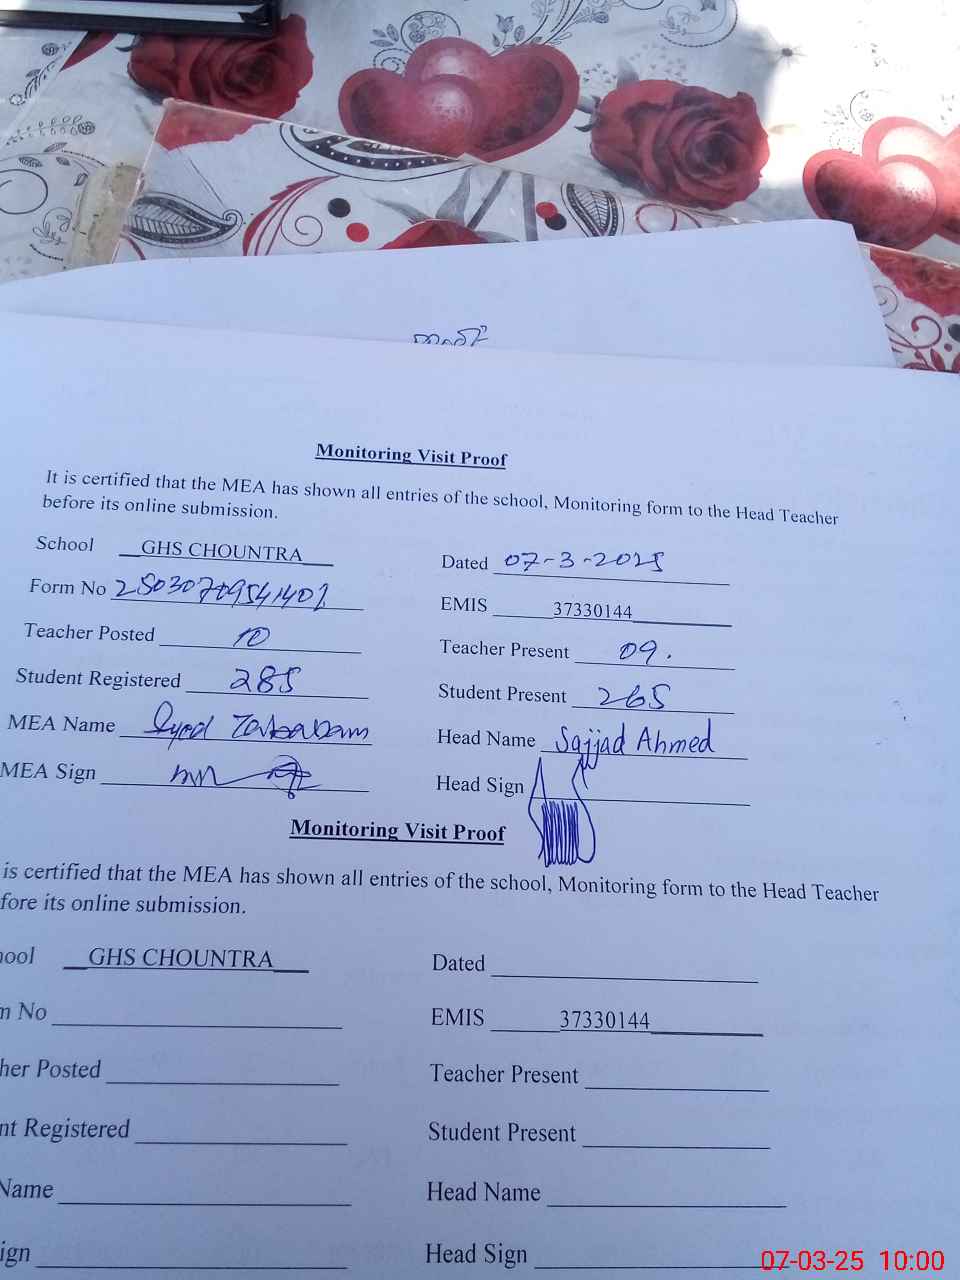 Monitoring Visit Proof
It is certified that the MEA has shown all entries of the school, Monitoring form to the Head Teacher
before its online submission.
School GHS CHOUNTRA Dated 07-3-2025
Form No EMIS 37330144
Teacher Posted 10 Teacher Present 09.
Student Registered 285 Student Present 265
MEA Name Syed Head Name Sajjad Ahmed
MEA Sign Head Sign
Monitoring Visit Proof
is certified that the MEA has shown all entries of the school, Monitoring form to the Head Teacher
fore its online submission.
ool GHS CHOUNTRA Dated
m No EMIS 37330144
her Posted Teacher Present
nt Registered Student Present
Name Head Name
ign Head Sign
07-03-25 10:00